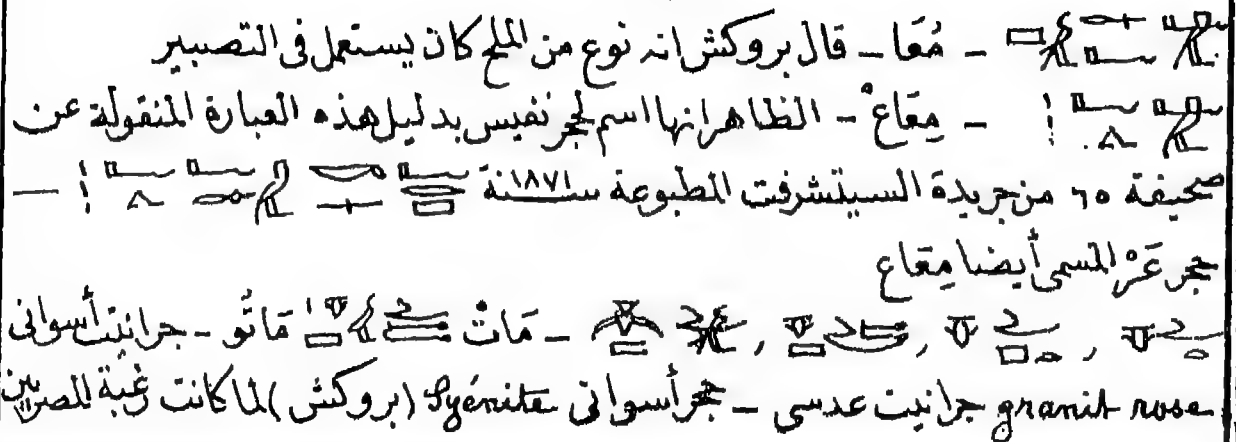 مُعَا ـ قال بروكش انه نوع من الملح كان يستعمل فى التصبير
ـ مِقَاعْ ـ الظاهر انها اسم لحجر نفيس بدليل هذه العبارة المنقولة عن
صحيفة ٦٥ من جريدة السيتشرفت المطبوعة سنة ١٨٧١ —
حجر عَرْ المسمى أيضا مِقاع
ـ مَاتْ مَاتُو ـ جرانيت أسوانى
granit rose جرانيت عدسى ـ حجر أسوانى Syénite (بروكش) لما كانت رغبة المصريين